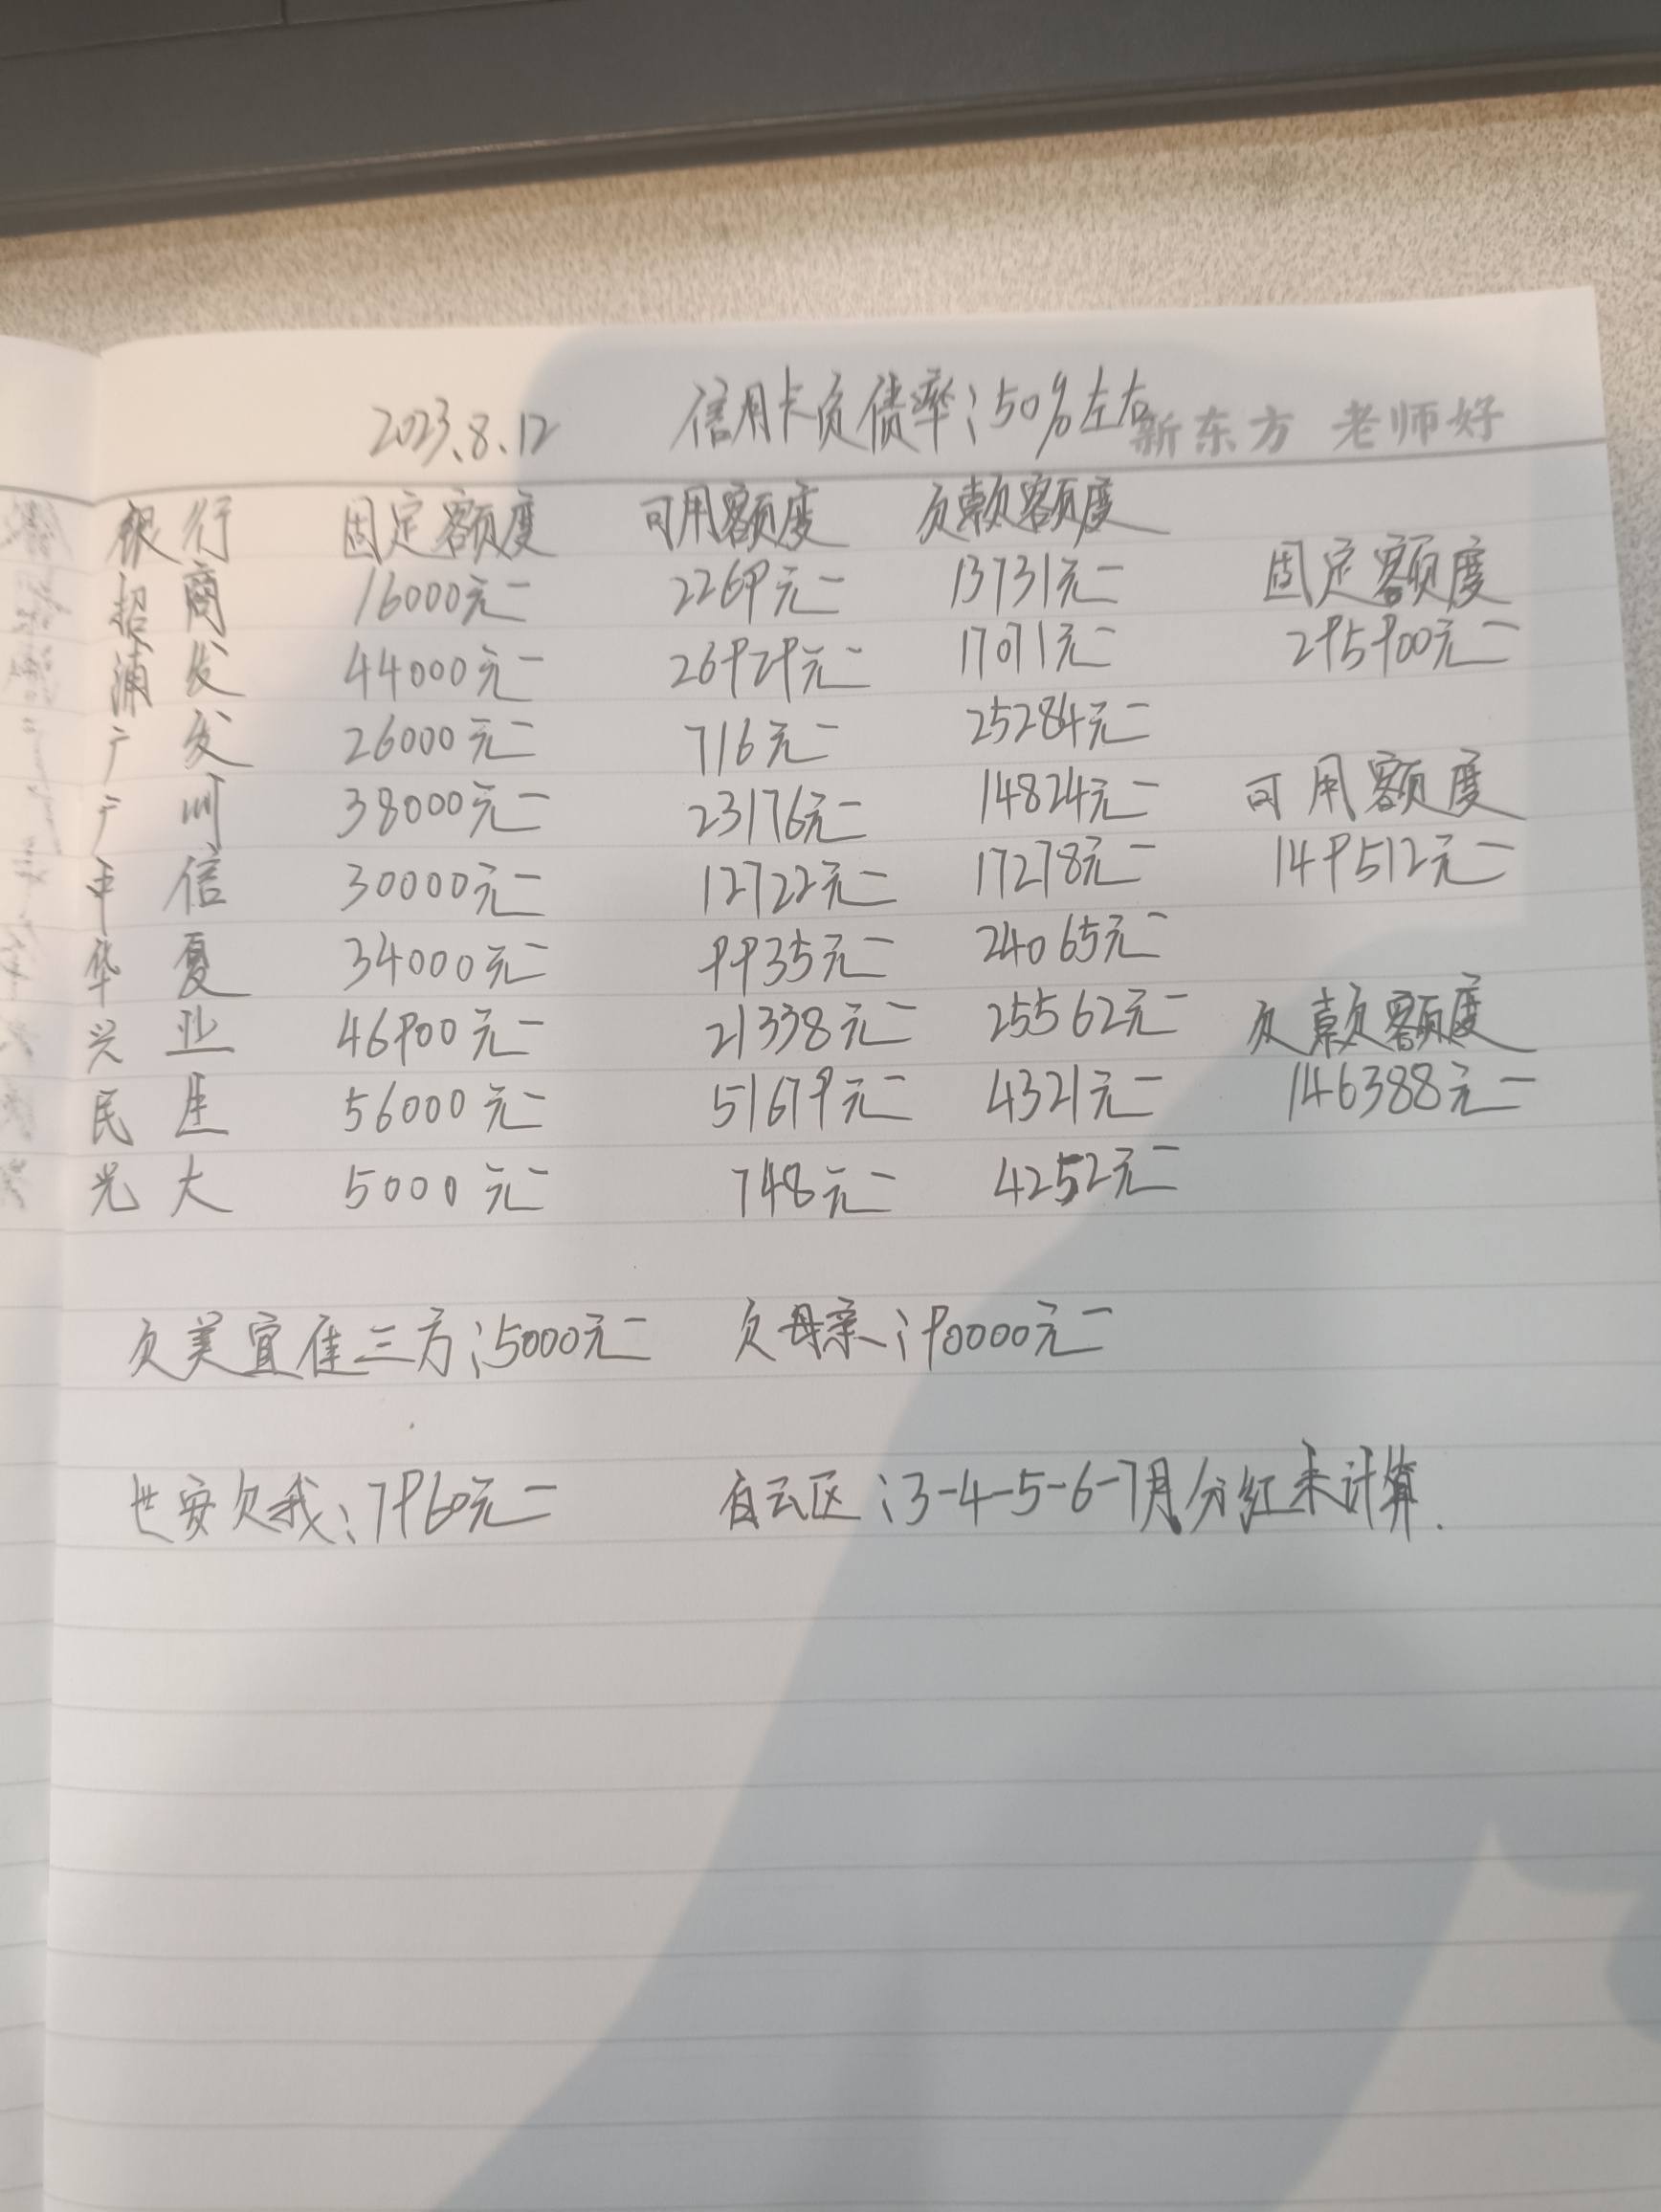 2023.8.12 信用卡负债率:50%左右
新东方 老师好
银行 固定额度 可用额度 欠款额度
招商 16000元 2269元 13731元 固定额度
浦发 44000元 26929元 17071元 295900元
广发 26000元 716元 25284元
广州 38000元 23176元 14824元 可用额度
中信 30000元 12722元 17278元 149512元
华夏 34000元 9935元 24065元
兴业 46900元 21338元 25562元 欠款额度
民生 56000元 51679元 4321元 146388元
光大 5000元 748元 4252元
欠美宜佳三方:5000元 欠母亲:90000元
世安欠我:7960元 白云区:3-4-5-6-7月分红未计算.